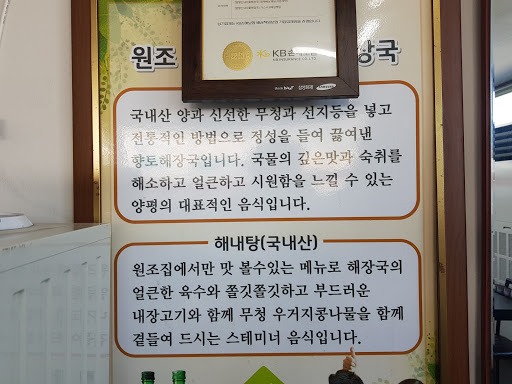 KB손해보험
원조
장국
국내산 양과 신선한 무청과 선지등을 넣고
전통적인 방법으로 정성을 들여 끓여낸
향토해장국입니다. 국물의 깊은맛과 숙취를
해소하고 얼큰하고 시원함을 느낄 수 있는
양평의 대표적인 음식입니다.
해내탕(국내산)
원조집에서만 맛 볼수있는 메뉴로 해장국의
얼큰한 육수와 쫄깃쫄깃하고 부드러운
내장고기와 함께 무청 우거지콩나물을 함께
곁들여 드시는 스테미너 음식입니다.